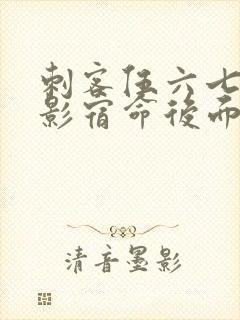 刺客伍六七
影宿命後而
清音墨影